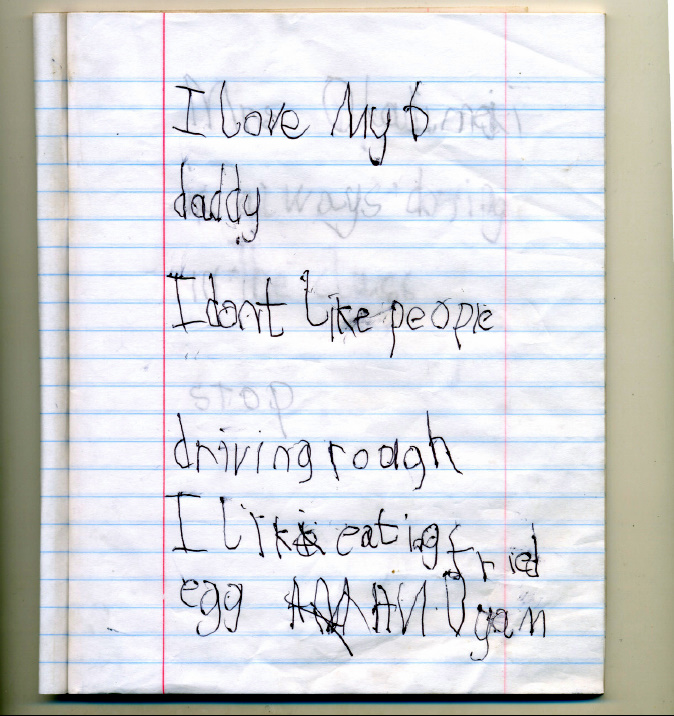 I love My
daddy
I dont like people
stop
driving rough
I like eating fried
egg AND yam